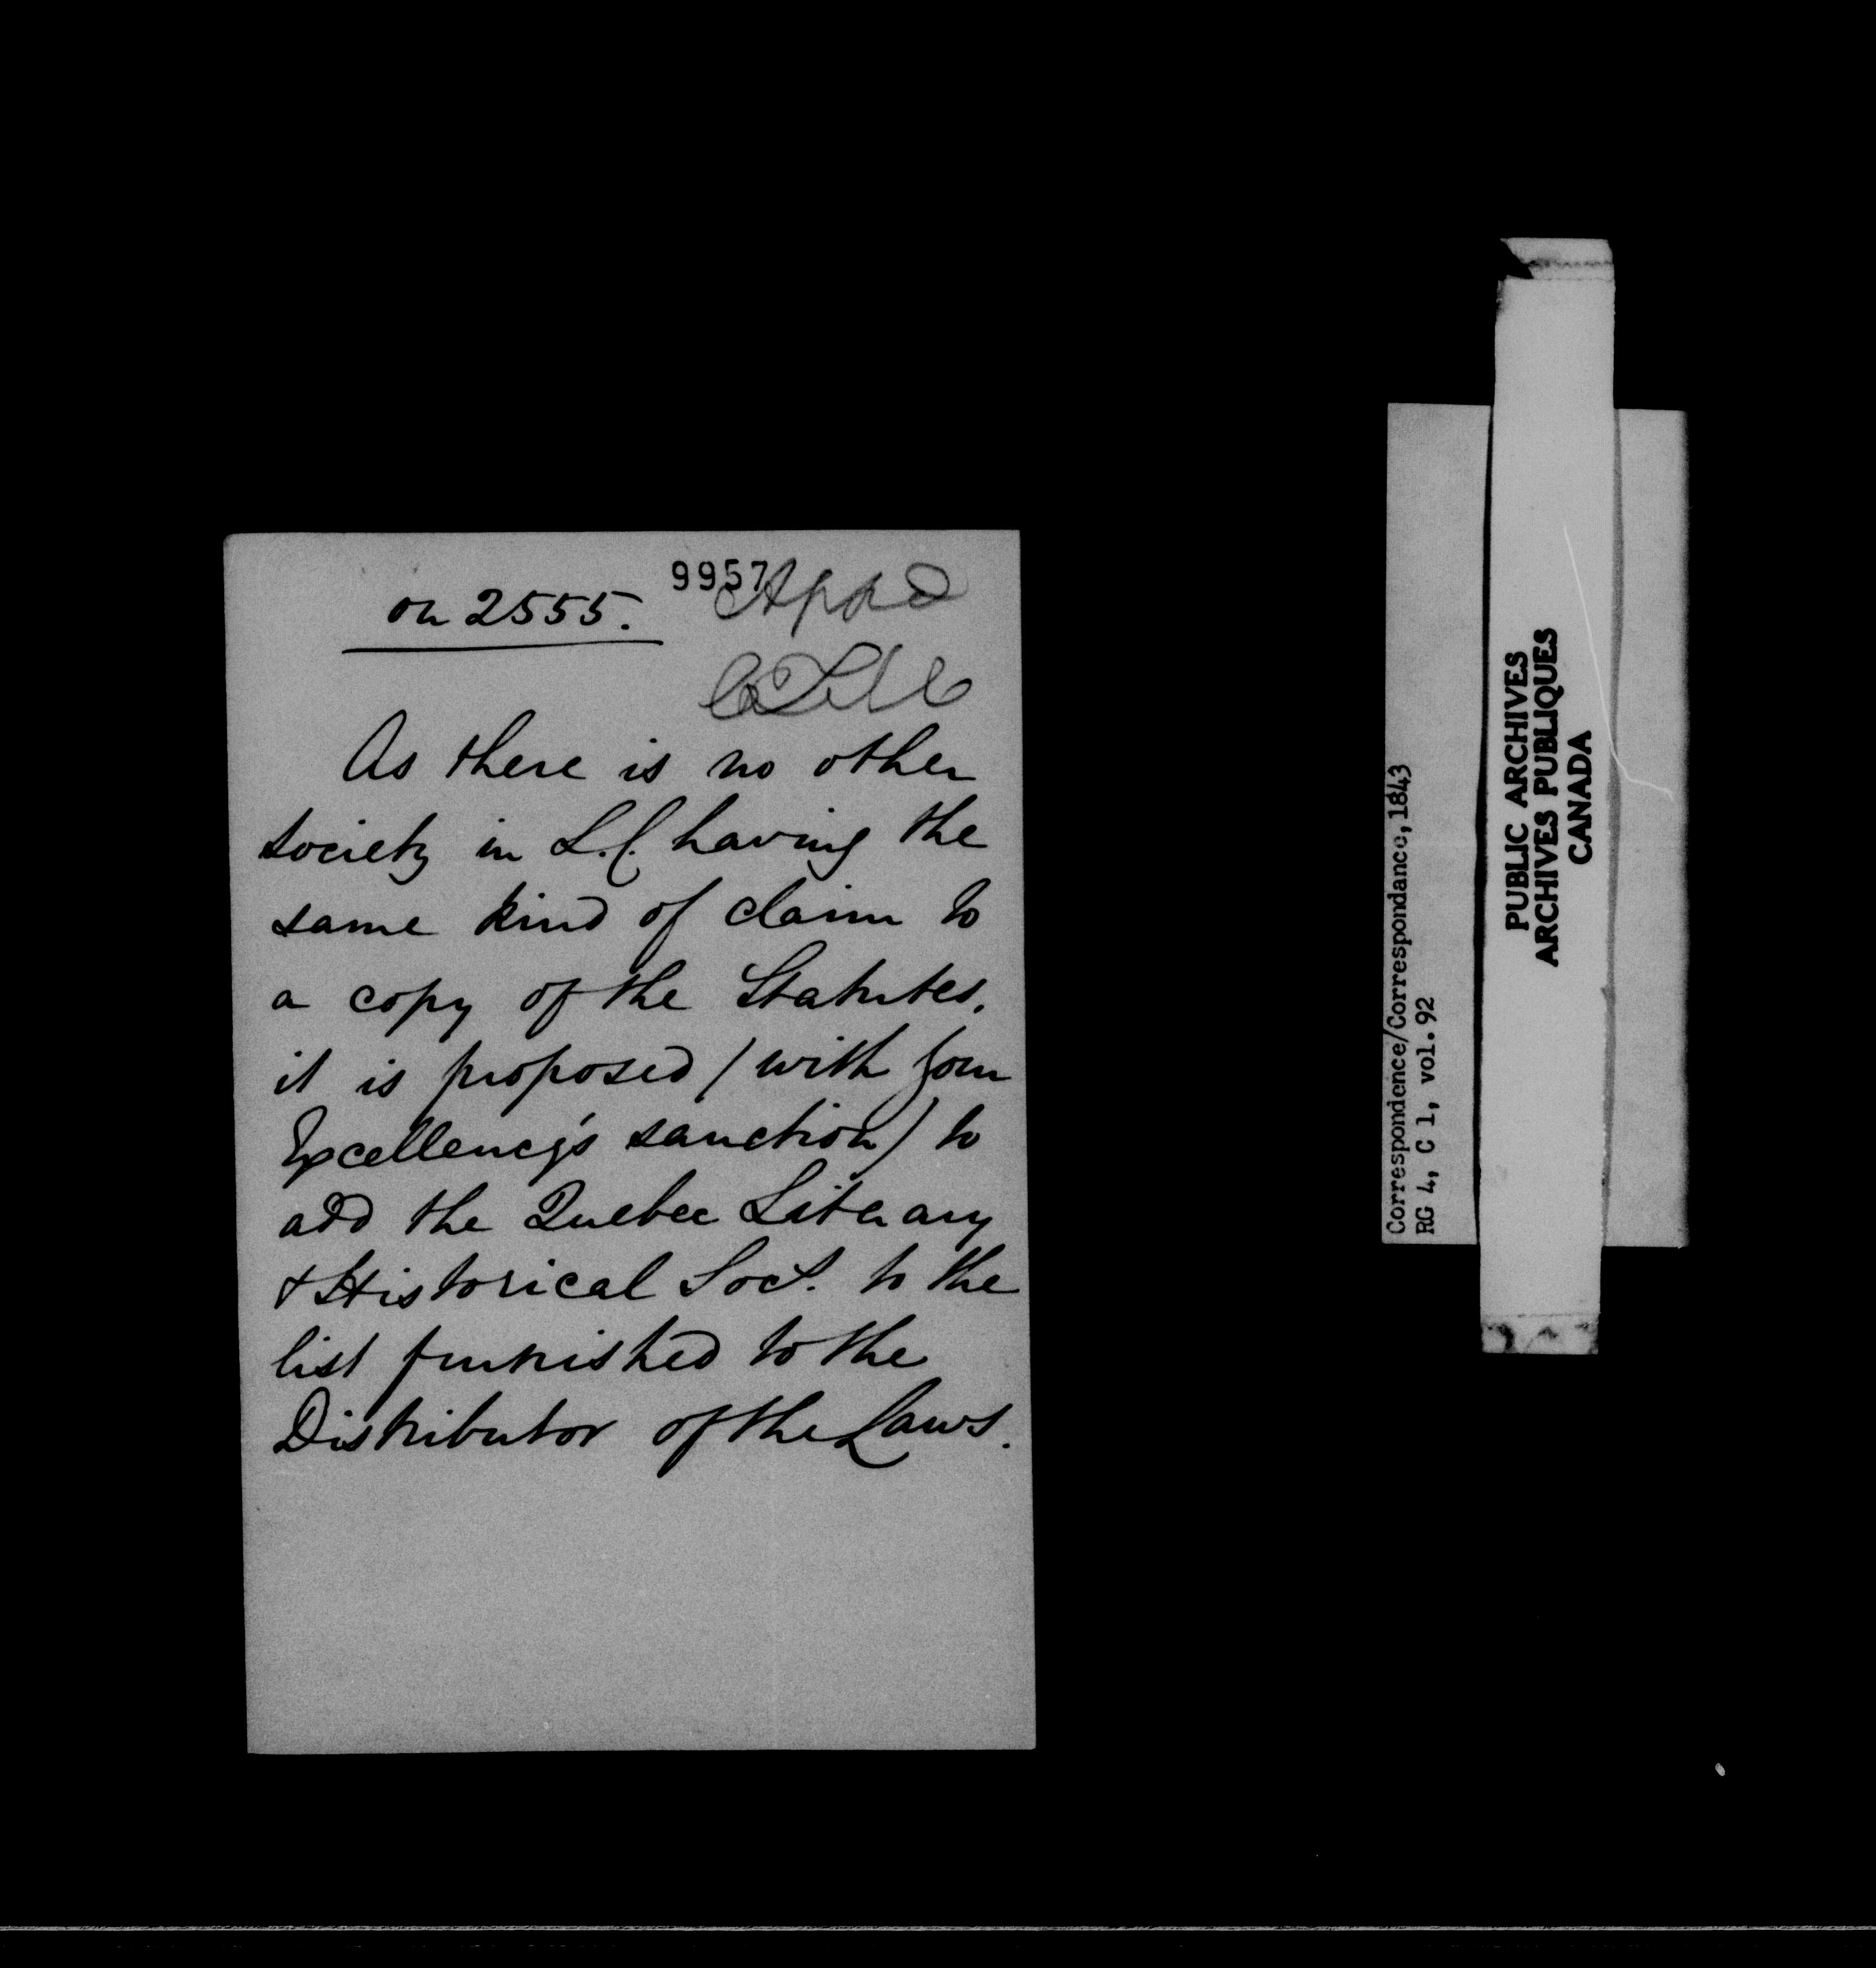 9957
on 2555.
Appd
As there is no other
society in L.C. having the
same kind of claim to
a copy of the Statutes,
it is proposed (with Your
Excellency's sanction) to
add the Quebec Literary
& Historical Soct. to the
list furnished to the
Distributor of the Laws.
Correspondence/Correspondance,1843
RG 4, C 1, vol.92
PUBLIC ARCHIVES
ARCHIVES PUBLIQUES
CANADA